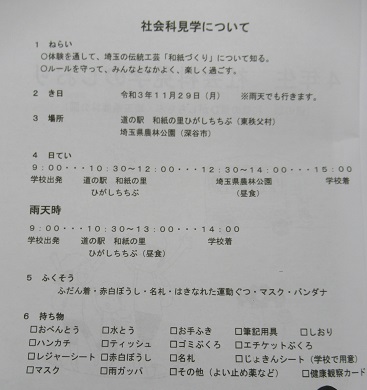 社会科見学について
1 ねらい
○体験を通して、埼玉の伝統工芸「和紙づくり」について知る。
○ルールを守って、みんなとなかよく、楽しく過ごす。
2 き日 令和3年11月29日（月） ※雨天でも行きます。
3 場所 道の駅 和紙の里ひがしちちぶ（東秩父村）
埼玉県農林公園（深谷市）
4 日てい
9：00・・・10：30～12：00・・・12：30～14：00・・・15：00
学校出発 道の駅 和紙の里 埼玉県農林公園 学校着
ひがしちちぶ （昼食）
雨天時
9：00・・・10：30～13：00・・・14：00
学校出発 道の駅 和紙の里 学校着
ひがしちちぶ（昼食）
5 ふくそう
ふだん着・赤白ぼうし・名札・はきなれた運動ぐつ・マスク・バンダナ
6 持ち物
□おべんとう □水とう □お手ふき □筆記用具 □しおり
□ハンカチ □ティッシュ □ゴミぶくろ □エチケットぶくろ
□レジャーシート □赤白ぼうし □名札 □じょきんシート（学校で用意）
□マスク □雨ガッパ □その他（よい止め薬など） □健康観察カード